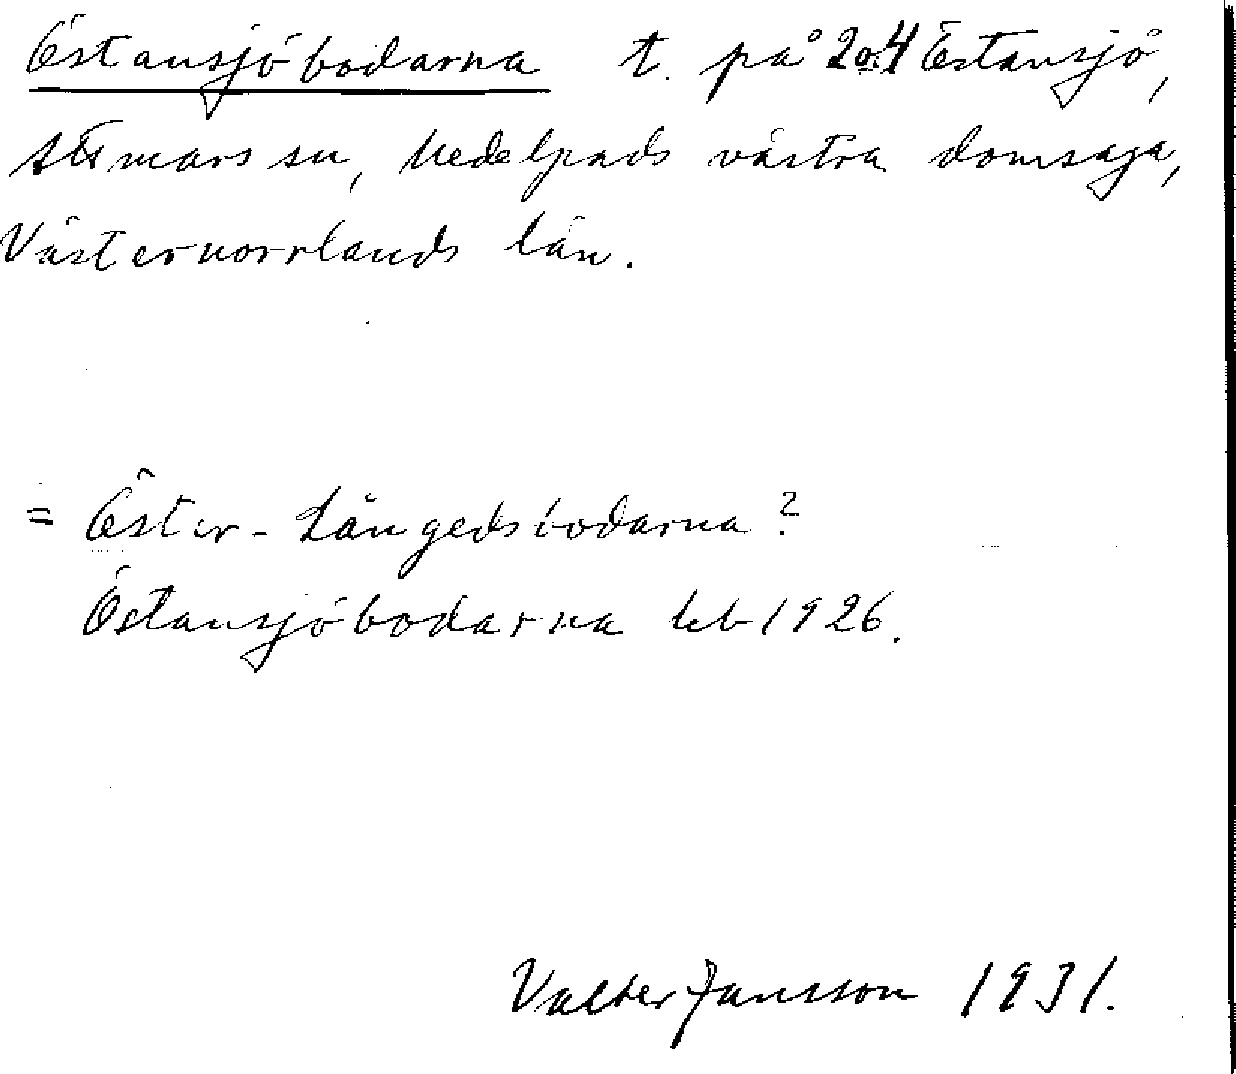 Östansjöbodarna t. på 2o.4 Östansjö,
Attmars sn, Medelpads västra domsaga,
Västernorrlands län.
= Öster-Långedsbodarna?
Östansjöbodarna 1926.
Valter Jansson 1931.